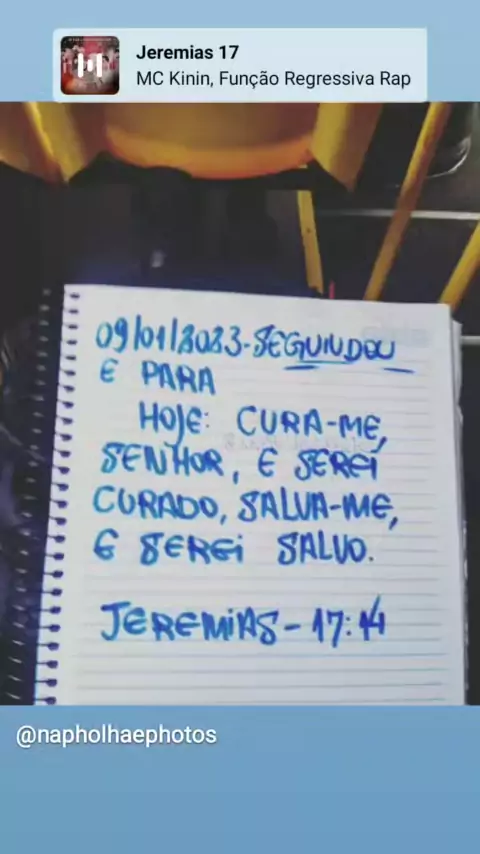 Jeremias 17
MC Kinin, Função Regressiva Rap
09/01/2023-SEGUNDOU
E PARA
HOJE: CURA-ME,
SENHOR, E SEREI
CURADO, SALVA-ME,
E SEREI SALVO.
JEREMIAS-17:14
@napholhaephotos